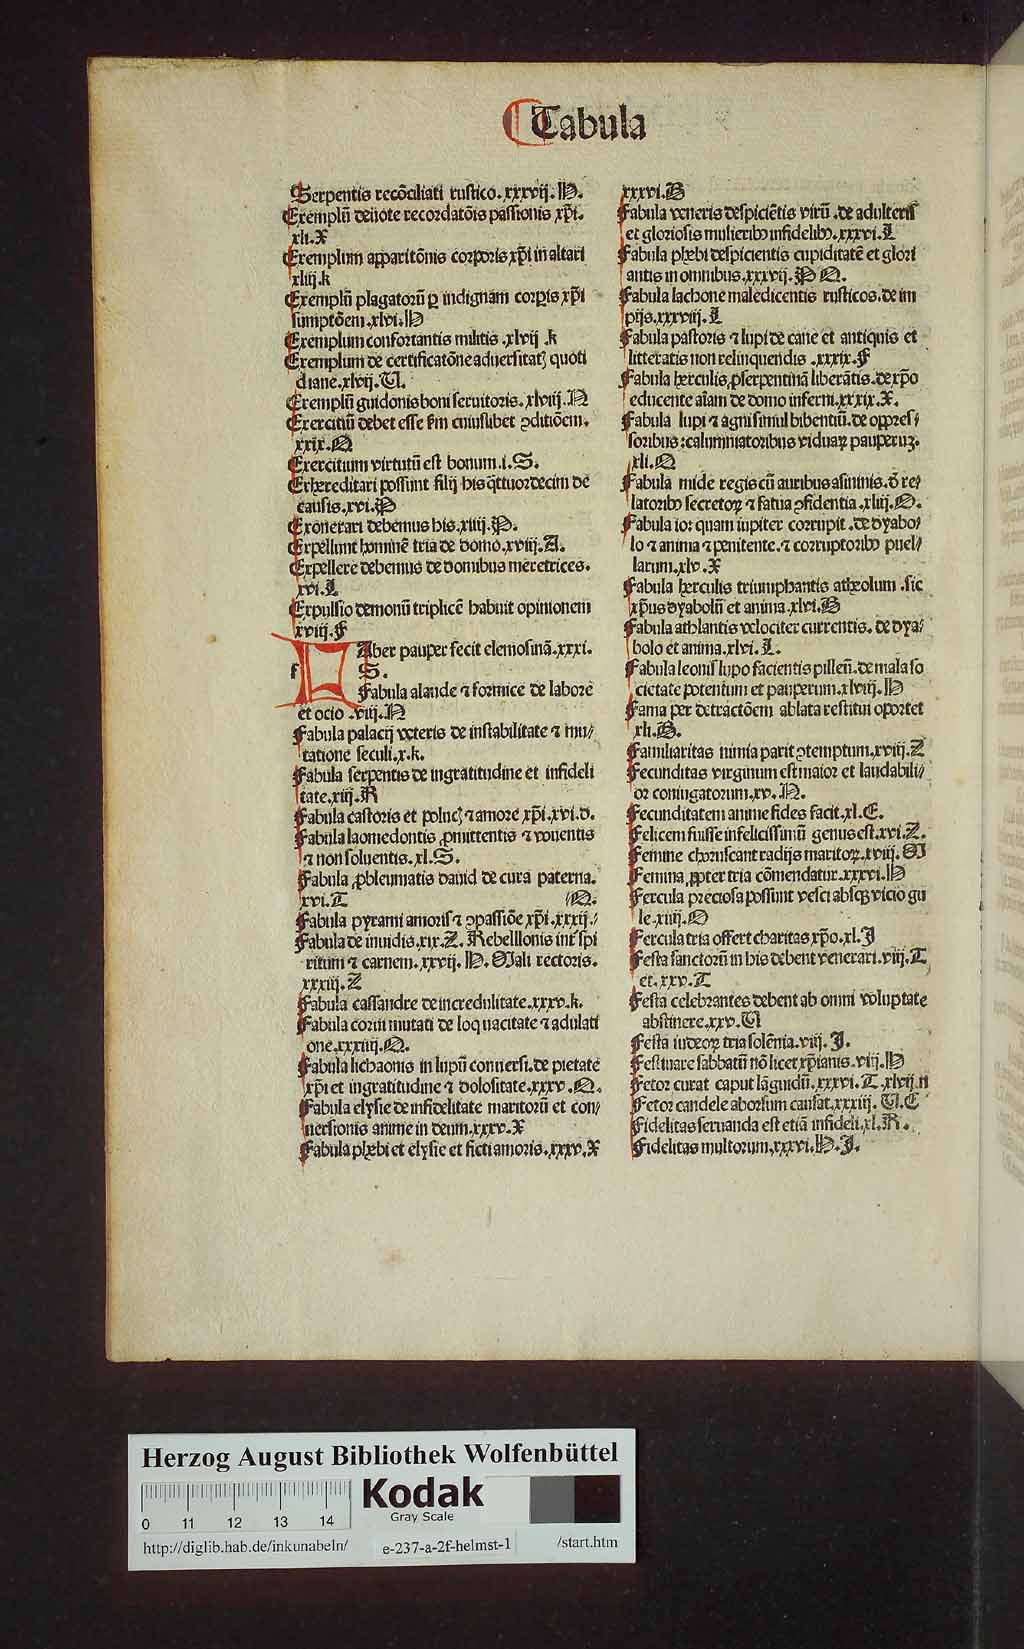 Tabula
Serpentis recõciliati rustico.xxxvij.H.
Exemplũ deuote recordatõis passionis xp̃i.
xli.X
Exemplum apparitõnis corporis xp̃i in altari
xliij.k
Exemplũ plagatorũ ꝓ indignam corpis xp̃i
sumptõem.xlvi.H
Exemplum confortantis militis.xlvij.k
Exemplum de certificatõne aduersitatꝫ quoti
diane.xlvij.U.
Exemplũ guidonis boni seruitoris.xlviij.N
Exercitiũ debet esse ẜm cuiuslibet ꝯditiõem.
xxix.Q
Exercitium virtutũ est bonum.i.S.
Exhereditari possunt filij his q̃ttuordecim de
causis.xvi.P
Exonerari debemus his.xiiij.P.
Expellunt hominẽ tria de domo.xviij.A.
Expellere debemus de domibus meretrices.
xvi.L
Expulsio demonũ triplicẽ habuit opinionem
xviij.F
f Aber pauper fecit elemosinã.xxxi.
S.
Fabula alaude ⁊ formice de labore
et ocio.viij.N
Fabula palacij veteris de instabilitate ⁊ mu⸗
tatione seculi.x.k.
Fabula serpentis de ingratitudine et infideli
tate.xiij.R
Fabula castoris et polucꝫ ⁊ amore xp̃i.xvi.d.
Fabula laomedontis ꝓmittentis ⁊ vouentis
⁊ non soluentis.xl.S.
Fabula ꝓbleumatis dauid de cura paterna.
xvi.T
Fabula pyrami amoris ⁊ ꝯpassiõe xp̃i.xxxij. //Q.
Fabula de inuidis.xix.Z. Rebelllonis int̃ spi
ritum ⁊ carnem.xxvij.H. Mali rectoris.
xxxiij.Z
Fabula cassandre de incredulitate.xxxv.k.
Fabula corui mutati de loquacitate ⁊ adulati
one.xxxiiij.Q.
Fabula lichaonis in lupũ conuersi.de pietate
xp̃i et ingratitudine ⁊ dolositate.xxxv.Q.
Fabula elysie de infidelitate maritorũ et con⸗
uersionis anime in deum.xxxv.X
Fabula phebi et elysie et ficti amoris.xxxv.X
xxxvi.B
Fabula veneris despiciẽtis virũ.de adulteris
et gloriosis mulieribꝰ infidelibꝰ.xxxvi.L
Fabula phebi despicientis cupiditatẽ et glori
antis in omnibus.xxxvij.P Q.
Fabula lachone maledicentis rusticos.de im
pijs.xxxviij.L
Fabula pastoris ⁊ lupi de cane et antiquis et
litteratis non relinquendis.xxxix.F
Fabula herculis ꝓserpentinã liberãtis.de xp̃o
educente aĩam de domo inferni.xxxix.X.
Fabula lupi ⁊ agni simul bibentiũ.de oppres⸗
soribus:calumniatoribus viduaꝝ pauperuꝫ.
xli.Q
Fabula mide regis cũ auribus asininis.d̃ re⸗
latoribꝰ secretoꝝ ⁊ fatua ꝯfidentia.xliij.O.
Fabula io: quam iupiter corrupit.de dyabo⸗
lo ⁊ anima ⁊ penitente.⁊ corruptoribꝰ puel⸗
larum.xlv.X
Fabula herculis triumphantis atheolum.sic
xp̃us dyabolũ et anima.xlvi.B
Fabula athlantis velociter currentis. de dya⸗
bolo et anima.xlvi.L.
Fabula leonis lupo facientis pilleũ.de mala so
cietate potentum et pauperum.xlviij.H
Fama per detractõem ablata restitui oportet
xli.B.
Familiaritas nimia parit ꝯtemptum.xviij.Z
Fecunditas virginum est maior et laudabili⸗
or coniugatorum.xv.H.
Fecunditatem anime fides facit.xl.E.
Felicem fuisse infelicissimũ genus est.xvi.Z.
Femine choruscant radijs maritoꝝ.xviij.M
Femina ꝓpter tria cõmendatur.xxxvi.H
Fercula preciosa possunt vesci absqꝫ vicio gu
le.xiiij.O
Fercula tria offert charitas xp̃o.xl.J
Festa sanctorũ in his debent venerari.viij.T
et.xxv.T
Festa celebrantes debent ab omni voluptate
abstinere.xxv.U
Festa iudeoꝝ tria solẽnia.viij.J.
Festiuare sabbatũ nõ licet xp̃ianis.viij.H
Fetor curat caput lãguidũ.xxxvi.T.xlvij.n
Fetor candele aborsum causat.xxxiij.U.E
Fidelitas seruanda est etiã infideli.xl.R.
Fidelitas multorum.xxxvi.H.J.
Herzog August Bibliothek Wolfenbüttel
Kodak
Gray Scale
0 11 12 13 14
http://diglib.hab.de/inkunabeln/ e-237-a-2f-helmst-1 /start.htm